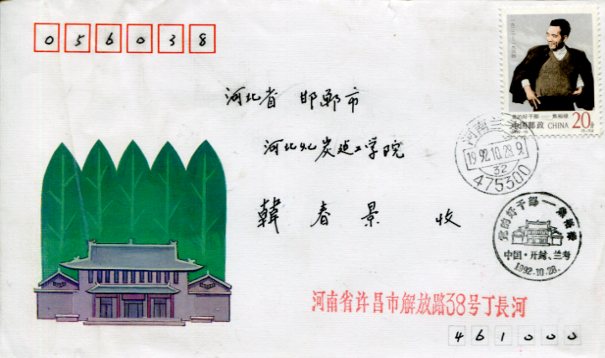 056038
河北省 邯郸市
河北煤炭建工学院
韩春景 收
党的好干部——焦裕禄
中国邮政 CHINA 20分
河南兰考
1992.10.28.9
32
475300
党的好干部——焦裕禄
中国·开封、兰考
1992.10.28.
河南省许昌市解放路38号丁長河
461000